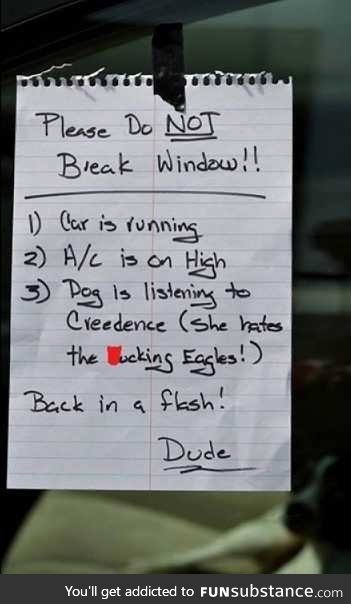 Please Do NOT
Break Window!!
1) Car is running
2) A/c is on High
3) Dog is listening to
Creedence (she hates
the ucking Eagles!)
Back in a flash!
Dude
You'll get addicted to FUNsubstance.com